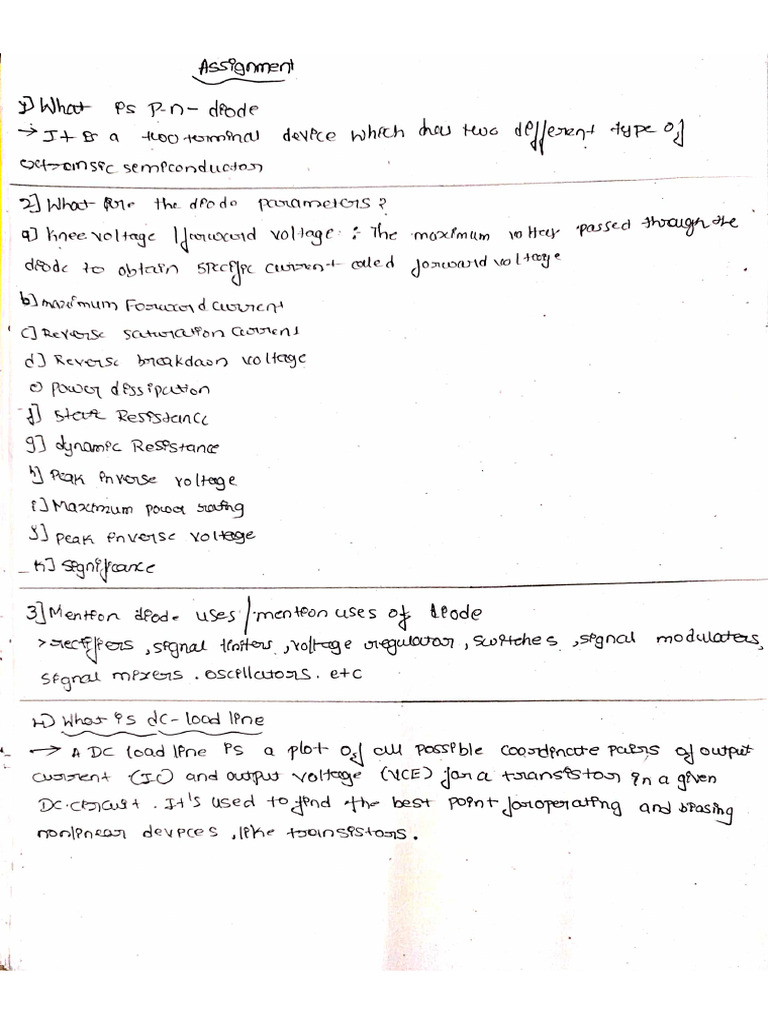 Assignment
1) What is P-n-diode
→ It is a two terminal device which has two different type of
extrinsic semiconductor
2] What are the diode parameters?
a) knee voltage /forward voltage : The maximum voltage passed through the
diode to obtain specific current called forward voltage
b) maximum Forward current
c] Reverse saturation current
d] Reverse breakdown voltage
e) power dissipation
f] static Resistance
g] dynamic Resistance
h] Peak inverse voltage
i] Maximum power rating
j] peak inverse voltage
k] significance
3] Mention diode uses/mention uses of diode
>rectifiers, signal limiters, voltage regulator, switches, signal modulaters,
signal mixers. oscillators. etc
4) What is dc-load line
→ A DC load line is a plot of all possible coordinate pairs of output
current (IC) and output voltage (VCE) for a transistor in a given
DC.circuit. It's used to find the best point for operating and biasing
nonlinear devices, like transistors.